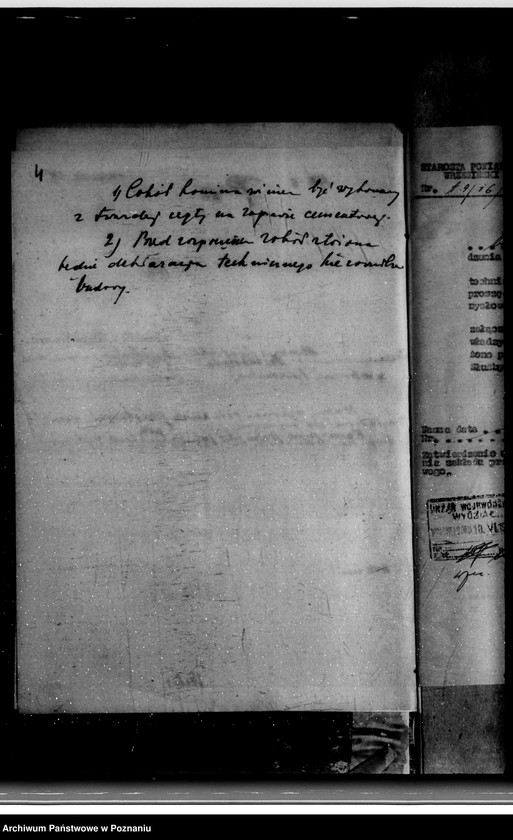 4
1) Cokół komina winien być wykonany
z twardej cegły na zaprawie cementowej.
2) Przed rozpoczęciem robót złożona
będzie deklaracja technicznego kierownika
budowy.
STAROSTA POWIA
WRZESIŃSKI
Nr.
dzenia
techni
proszę
załącz
władzy
żono p
służby
Wasza data
Nr.
Zatwierdzenie
nie zakładu prz
wego.
URZĄD WOJEWÓDZ
WYDZIAŁ
Archiwum Państwowe w Poznaniu